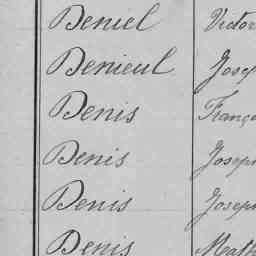 Deniel Victor
Denieul Josep
Denis Franço
Denis Joseph
Denis Joseph
Denis Math